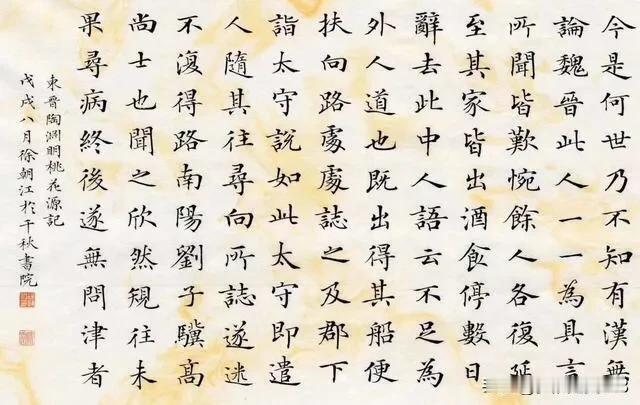 今是何世乃不知有漢無
論魏晉此人一一為具言
所聞皆歎惋餘人各復延
至其家皆出酒食停數日
辭去此中人語云不足為
外人道也既出得其船便
扶向路處處誌之及郡下
詣太守說如此太守即遣
人隨其往尋向所誌遂迷
不復得路南陽劉子驥高
尚士也聞之欣然規往未
果尋病終後遂無問津者
東晉陶淵明桃花源記
戊戌八月徐朝江於千秋書院